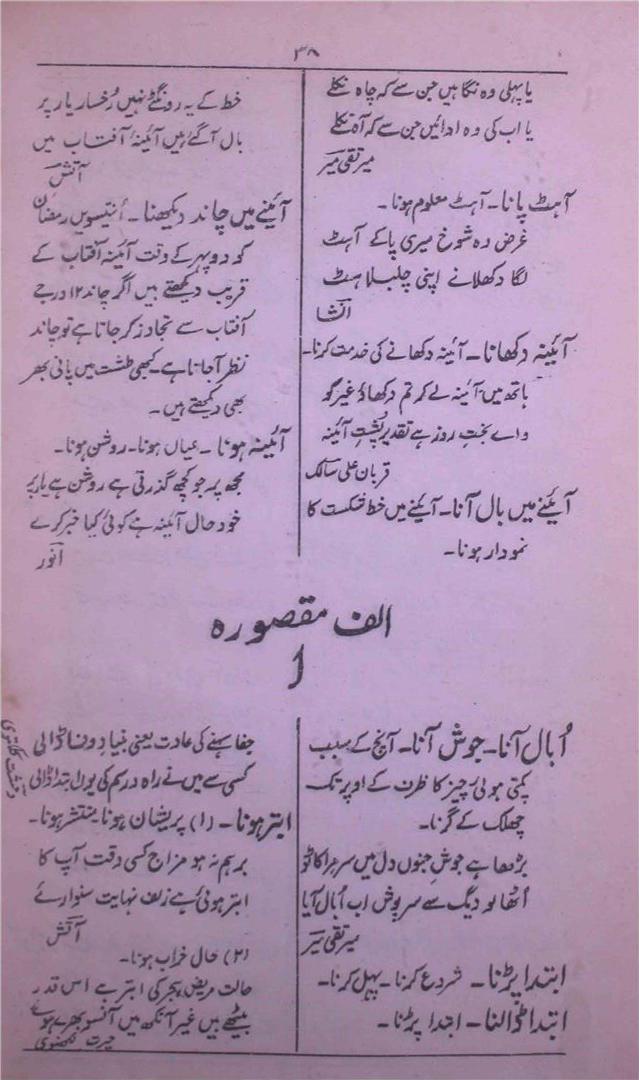 ۳۸
یا پہلی وہ نگاہیں جن سے کہ چاہ نکلے
یا اب کی وہ ادائیں جن سے کہ آہ نکلے
میر تقی میر
آہٹ پانا۔ آہٹ معلوم ہونا۔
غرض وہ شوخ میری پا کے آہٹ
لگا دکھلانے اپنی چلبلاہٹ
انشا
آئینہ دکھانا۔ آئینہ دکھانے کی خدمت کرنا۔
ہاتھ میں آئینہ لے کر تم دکھاؤ غیر کو
واے بختِ روز ہے تقدیر پشتِ آئینہ
قربان علی سالک
آئینے میں بال آنا۔ آئینے میں خط شکست کا
نمودار ہونا۔
خط کے یہ رونگٹے نہیں رُخسار یار پر
بال آگئے ہیں آئینۂ آفتاب میں
آتش
آئینے میں چاند دیکھنا۔ اُنتیسویں رمضان
کو دوپہر کے وقت آئینہ آفتاب کے
قریب دیکھتے ہیں اگر چاند ۱۲ درجے
آفتاب سے تجاوز کر جاتا ہے تو چاند
نظر آجاتا ہے۔ کبھی طشت میں پانی بھر
بھی دیکھتے ہیں۔
آئینہ ہونا۔ عیاں ہونا۔ روشن ہونا۔
مجھ پہ جو کچھ گذرتی ہے روشن ہے یار پر
خود حال آئینہ ہے کوئی کیا خبر کرے
انور
الف مقصورہ
ا
اُبال آنا۔ جوش آنا۔ آنچ کے سبب
پکتی ہوئی چیز کا ظرف کے اوپر تک
چھلک کے گرنا۔
بڑھا ہے جوشِ جنوں دل میں سر مرا کاٹو
اُٹھا لو دیگ سے سرپوش اب اُبال آیا
میر تقی میر
ابتدا پڑنا۔ شروع کرنا۔ پہل کرنا۔
ابتدا ڈالنا۔ ابتدا پڑنا۔
جفا سہنے کی عادت یعنی بنیادِ وفا ڈالی
کسی سے میں نے راہ و رسم کی یوں ابتدا ڈالی
وحشت کلکتوی
ابتر ہونا۔ (۱) پریشان ہونا۔ منتشر ہونا۔
برہم نہ ہو مزاج کسی وقت آپ کا
ابتر ہوئی ہے زلف نہایت سنوارئے
آتش
(۲) حال خراب ہونا۔
حالت مریض ہجر کی ابتر ہے اس قدر
بیٹھے ہیں غیر آنکھ میں آنسو بھرے ہوے
حیرت لکھنوی